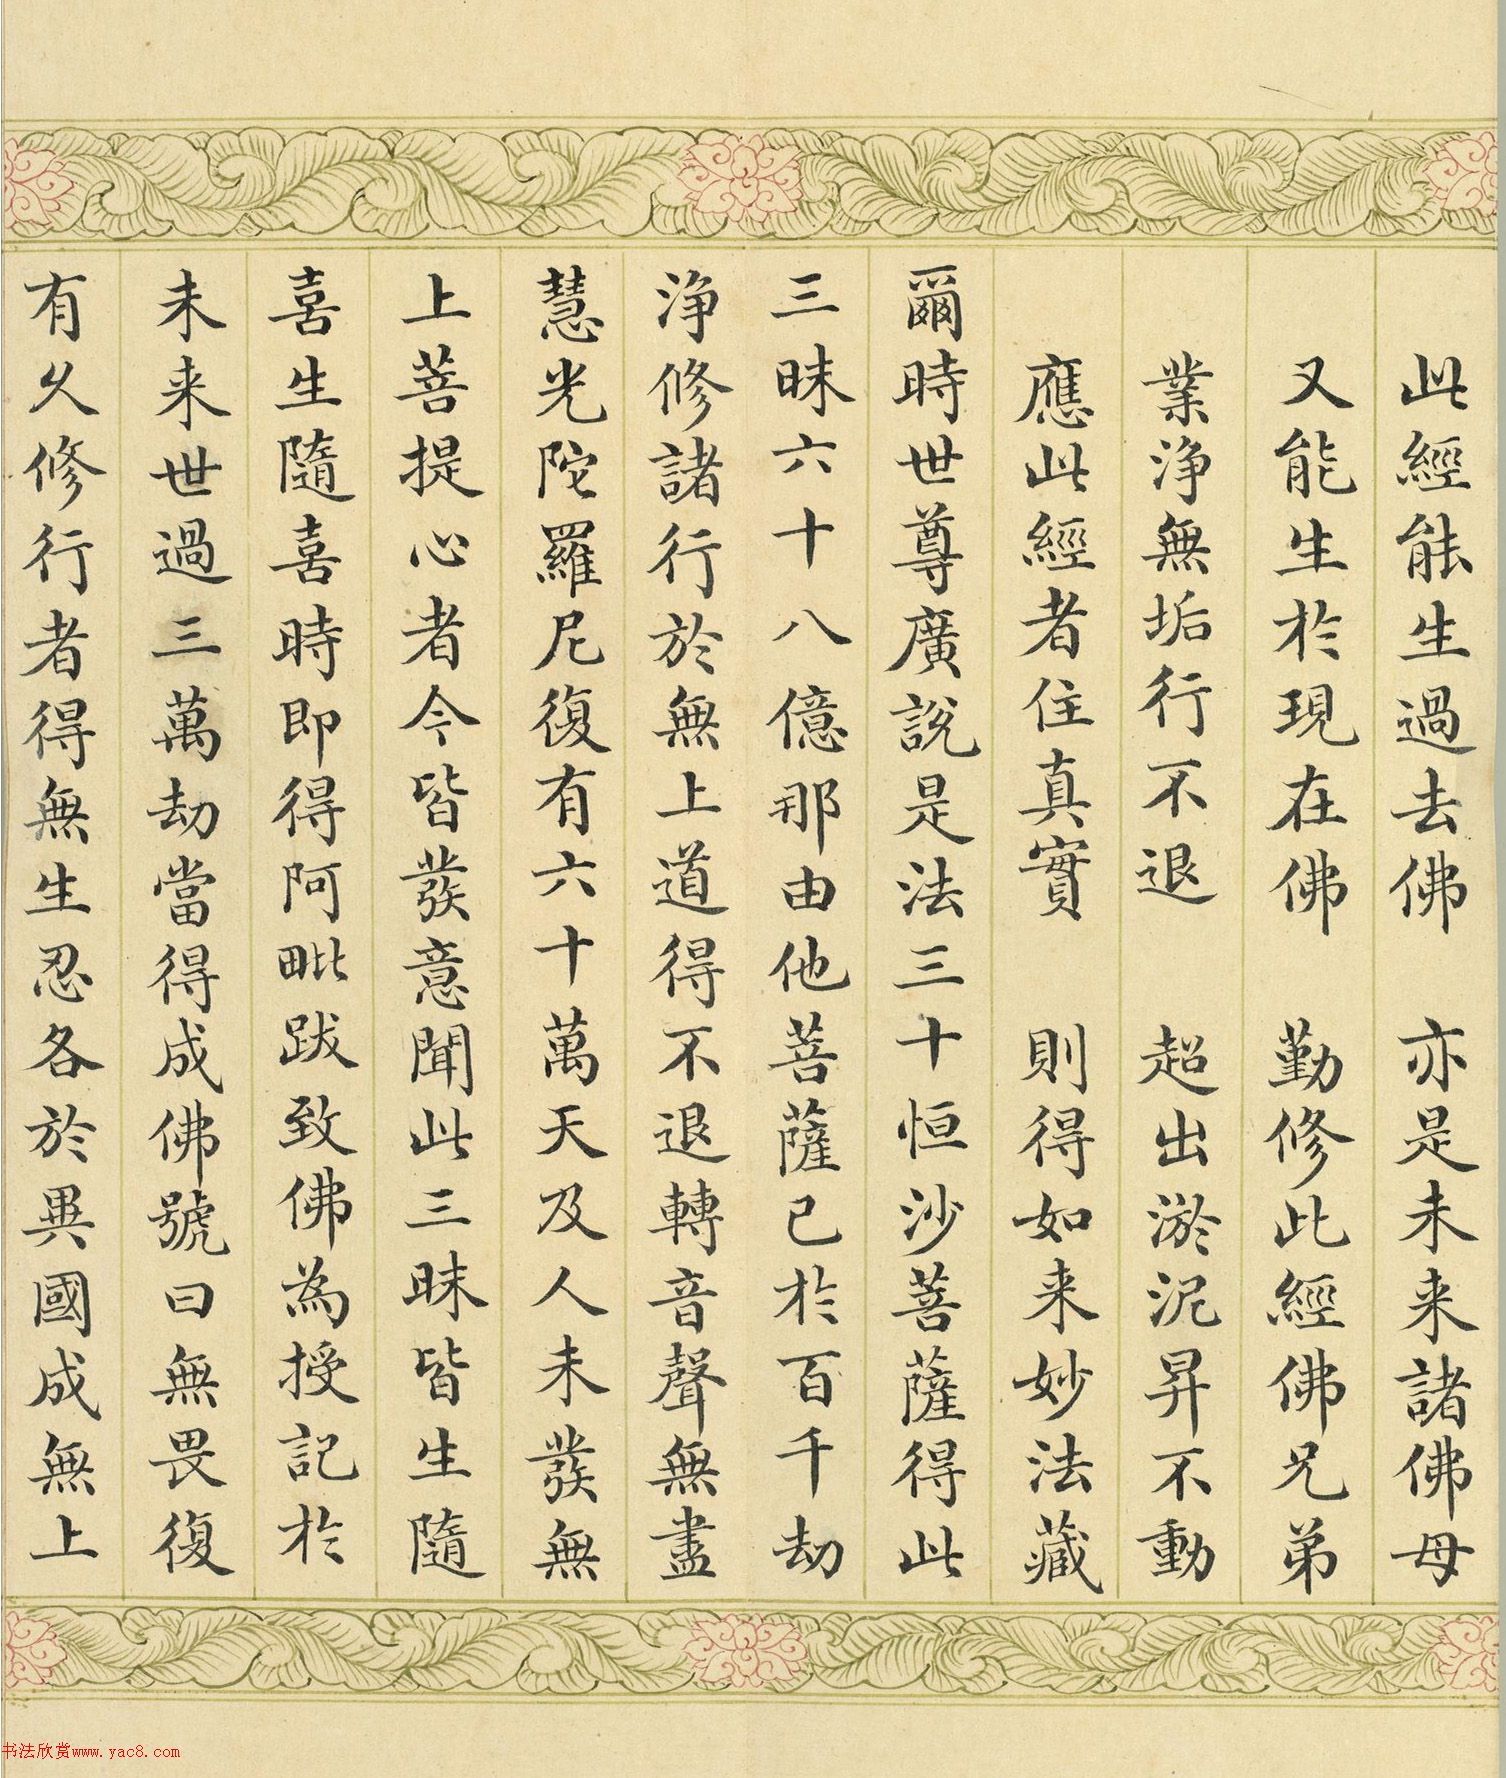 此經能生過去佛　亦是未来諸佛母
又能生於現在佛　勤修此經佛兄弟
業淨無垢行不退　超出淤泥昇不動
應此經者住真實　則得如来妙法藏
爾時世尊廣說是法三十恒沙菩薩得此
三昧六十八億那由他菩薩已於百千劫
淨修諸行於無上道得不退轉音聲無盡
慧光陀羅尼復有六十萬天及人未發無
上菩提心者今皆發意聞此三昧皆生隨
喜生隨喜時即得阿毗跋致佛為授記於
未来世過三萬劫當得成佛號曰無畏復
有久修行者得無生忍各於異國成無上
书法欣赏www.yac8.com